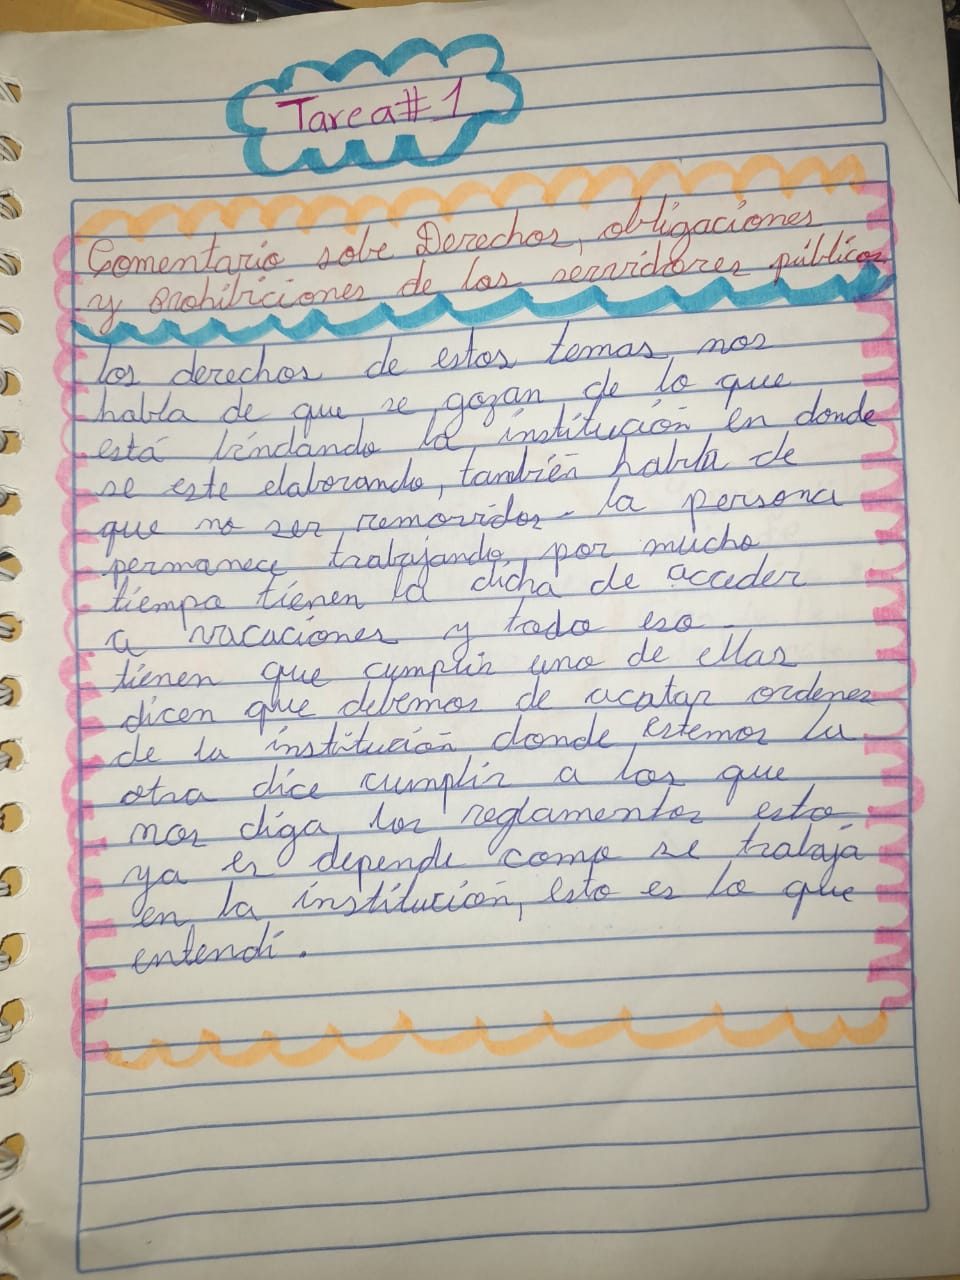 Tarea #1
Comentario sobe Derechos, obligaciones
y prohibiciones de los servidores públicos
los derechos de estos temas nos
habla de que se gozan de lo que
está bindando la institución en donde
se este elaborando, también habla de
que no ser removidos. la persona
permanece trabajando por mucho
tiempo tienen la dicha de acceder
a vacaciones y todo eso.
tienen que cumplir uno de ellas
dicen que debemos de acatar ordenes
de la institución donde estemos la
otra dice cumplir a los que
nos diga los reglamentos esto
ya es depende como se trabaja
en la institución, esto es lo que
entendí.